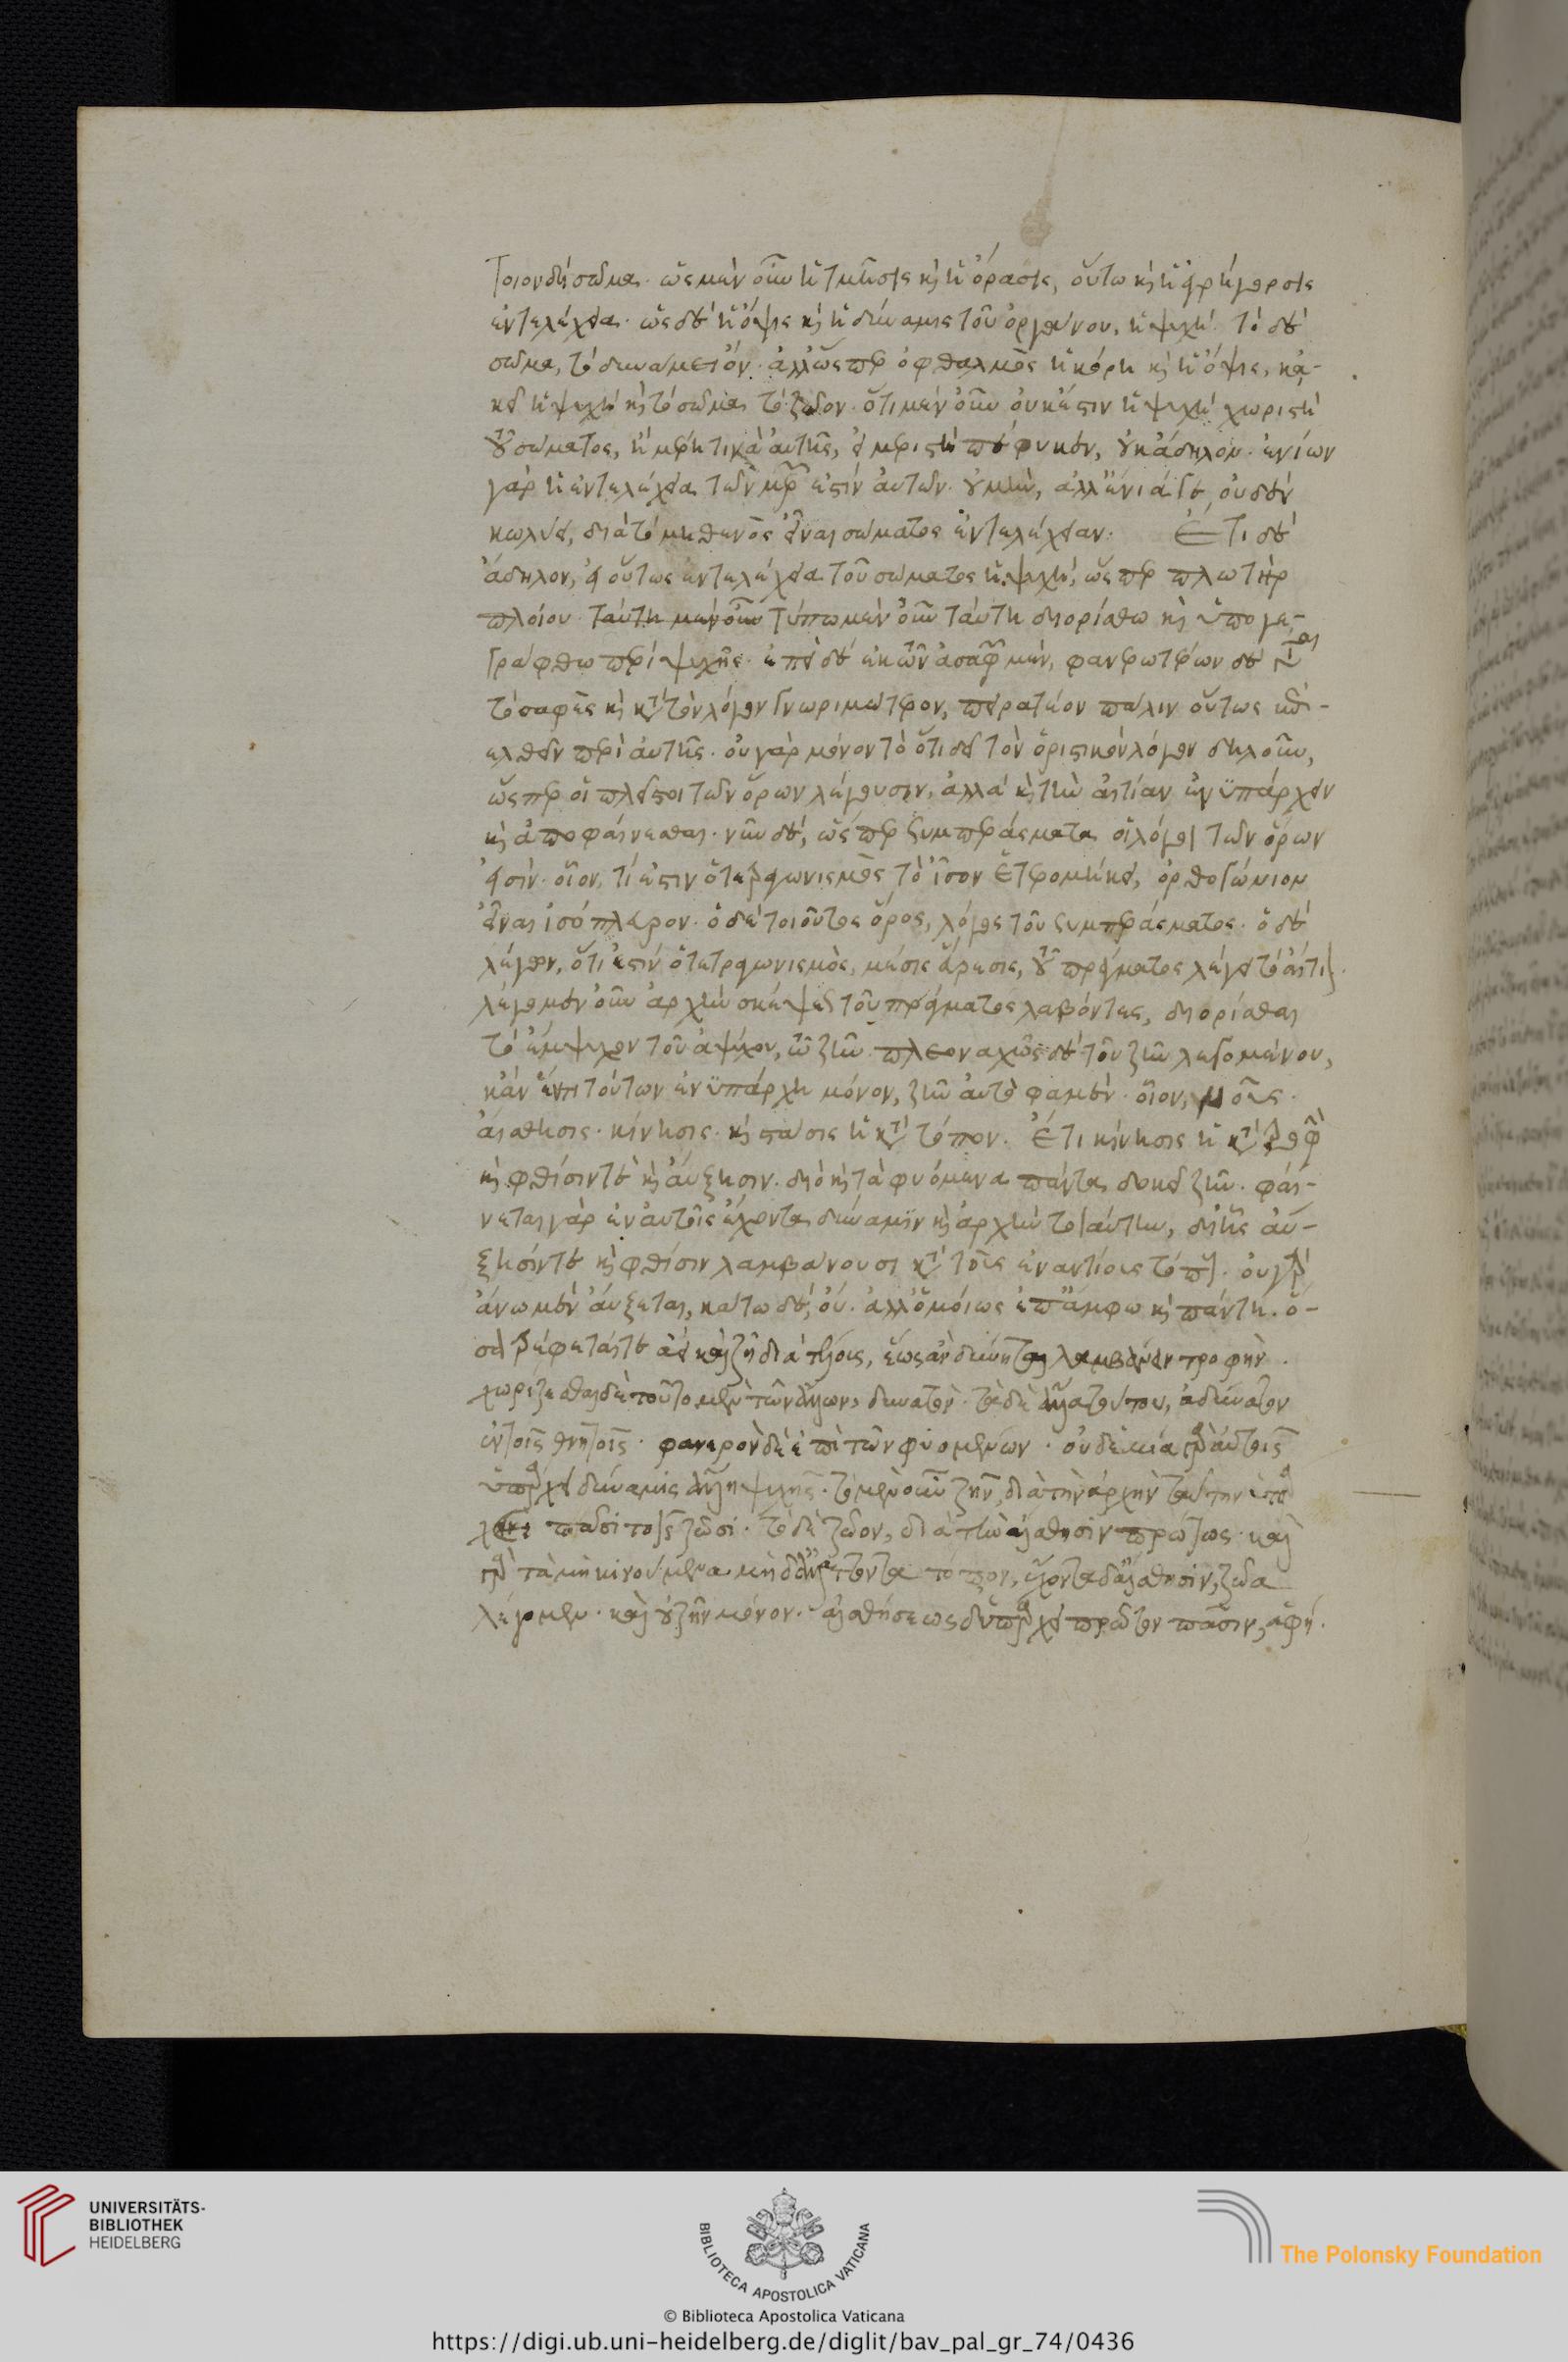 τοιονδὴ σῶμα. ὡς μὲν οὖν ἡ τμῆσις καὶ ἡ ὅρασις, οὕτω καὶ ἡ ἐγρήγορσις
ἐντελέχεια. ὡς δὲ ἡ ὄψις καὶ ἡ δύναμις τοῦ ὀργάνου, ἡ ψυχή. τὸ δὲ
σῶμα, τὸ δυνάμει ὄν. ἀλλ' ὥσπερ ὀφθαλμὸς ἡ κόρη καὶ ἡ ὄψις, κἀ-
κεῖ ἡ ψυχὴ καὶ τὸ σῶμα τὸ ζῶον. ὅτι μὲν οὖν οὐκ ἔστιν ἡ ψυχὴ χωριστὴ
τοῦ σώματος, ἢ μέρη τινὰ αὐτῆς, εἰ μεριστὴ πέφυκεν, οὐκ ἄδηλον. ἐνίων
γὰρ ἡ ἐντελέχεια τῶν μερῶν ἐστὶν αὐτῶν. οὐ μὴν, ἀλλ' ἔνιά γε, οὐδὲν
κωλύει, διὰ τὸ μηθενὸς εἶναι σώματος ἐντελέχειαν. Ἔτι δὲ
ἄδηλον, εἰ οὕτως ἐντελέχεια τοῦ σώματος ἡ ψυχή, ὥσπερ πλωτὴρ
πλοίου. ταύτη μὲν οὖν τύπω μὲν οὖν ταύτη διωρίσθω καὶ ὑπογε-
γράφθω περὶ ψυχῆς. ἐπεὶ δὲ ἐκ τῶν ἀσαφῶν μὲν, φανερωτέρων δὲ γίνεται
τὸ σαφὲς καὶ κατὰ τὸν λόγον γνωριμώτερον, πειρατέον πάλιν οὕτως ἐπ-
ελθεῖν περὶ αὐτῆς. οὐ γὰρ μόνον τὸ ὅτι δεῖ τὸν ὁριστικὸν λόγον δηλοῦν,
ὥσπερ οἱ πλεῖστοι τῶν ὅρων λέγουσιν, ἀλλὰ καὶ τὴν αἰτίαν ἐνϋπάρχειν
καὶ ἀποφαίνεσθαι. νῦν δὲ, ὥσπερ συμπεράσματα οἱ λόγοι τῶν ὅρων
εἰσίν. οἷον, τί ἐστιν ὁ τετραγωνισμὸς τὸ ἴσον ἑτερομήκει, ὀρθογώνιον
εἶναι ἰσόπλευρον. ὁ δὲ τοιοῦτος ὅρος, λόγος τοῦ συμπεράσματος. ὁ δὲ
λέγων, ὅτι ἐστὶν ὁ τετραγωνισμὸς, μέσης εὕρεσις, τοῦ πράγματος λέγει τὸ αἴτιον.
λέγομεν οὖν ἀρχὴν σκέψεως τοῦ πράγματος λαβόντες, διωρίσθαι
τὸ ἔμψυχον τοῦ ἀψύχου, τῷ ζῆν. πλεοναχῶς δὲ τοῦ ζῆν λεγομένου,
κἂν ἕν τι τούτων ἐνϋπάρχη μόνον, ζῆν αὐτό φαμεν. οἷον, νοῦς.
αἴσθησις. κίνησις. καὶ στάσις ἡ κατὰ τόπον. Ἔτι κίνησις ἡ κατὰ τροφὴν
καὶ φθίσίν τε καὶ αὔξησιν. διὸ καὶ τὰ φυόμενα πάντα δοκεῖ ζῆν. φαί-
νεται γὰρ ἐν αὑτοῖς ἔχοντα δύναμιν καὶ ἀρχὴν τοιαύτην, δι' ἧς αὔ-
ξησίν τε καὶ φθίσιν λαμβάνουσι κατὰ τοὺς ἐναντίους τόπους. οὐ γὰρ
ἄνω μὲν αὔξεται, κάτω δὲ, οὔ. ἀλλ' ὁμοίως ἐπ' ἄμφω καὶ πάντη. ὅ-
σα τρέφεταί τε ἀεὶ καὶ ζῇ διὰ τέλους, ἕως ἂν δύνηται λαμβάνειν τροφήν.
χωρίζεσθαι δὲ τοῦτο μὲν τῶν ἄλλων, δυνατὸν. τὰ δὲ ἄλλα τούτου, ἀδύνατον
ἐν τοῖς θνητοῖς. φανερὸν δὲ ἐπὶ τῶν φυομένων. οὐδεμία γὰρ αὐτοῖς
ὑπάρχει δύναμις ἄλλη ψυχῆς. τὸ μὲν οὖν ζῆν, διὰ τὴν ἀρχὴν ταύτην ὑπάρ
χει πᾶσι τοῖς ζῶσι. τὸ δὲ ζῶον, διὰ τὴν αἴσθησιν πρώτως. καὶ
γὰρ τὰ μὴ κινούμενα μηδ' ἀλλάττοντα τόπον, ἔχοντα δ' αἴσθησιν, ζῶα
λέγομεν. καὶ οὐ ζῆν μόνον. αἰσθήσεως δ' ὑπάρχει πρῶτον πᾶσιν, ἁφή.
UNIVERSITÄTS-
BIBLIOTHEK
HEIDELBERG
BIBLIOTECA APOSTOLICA VATICANA
The Polonsky Foundation
© Biblioteca Apostolica Vaticana
https://digi.ub.uni-heidelberg.de/diglit/bav_pal_gr_74/0436